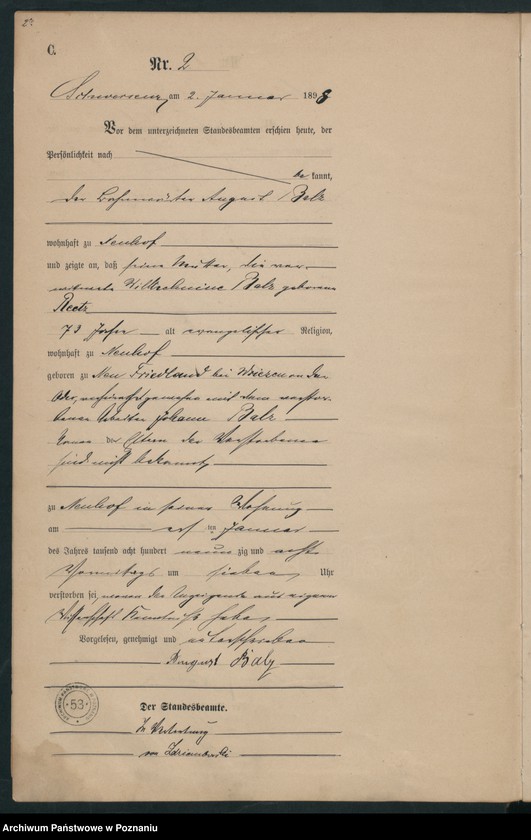 C.
Nr. 2
Schwersenz, am 2. Januar 1898
Vor dem unterzeichneten Standesbeamten erschien heute, der
Persönlichkeit nach
be kannt,
der August Balz
wohnhaft zu Neuhof
und zeigte an, daß seine Mutter, die ver-
witwete Wilhelmine Balz geborene
Reetz
73 Jahre alt evangelischer Religion,
wohnhaft zu Neuhof
geboren zu Neu Friedland bei Wriezen an der
Oder, verheirathet gewesen mit dem verstor-
benen Arbeiter Johann Balz
Namen der Eltern der Verstorbenen
sind nicht bekannt,
zu Neuhof in seiner Wohnung
am ersten Januar
des Jahres tausend acht hundert neun zig und acht
Vormittags um sieben Uhr
verstorben sei, wovon der Anzeigende aus eigener
Wissenschaft Kenntniß habe,
Vorgelesen, genehmigt und unterschrieben
August Balz
Der Standesbeamte.
In Vertretung
von
53
Archiwum Państwowe w Poznaniu